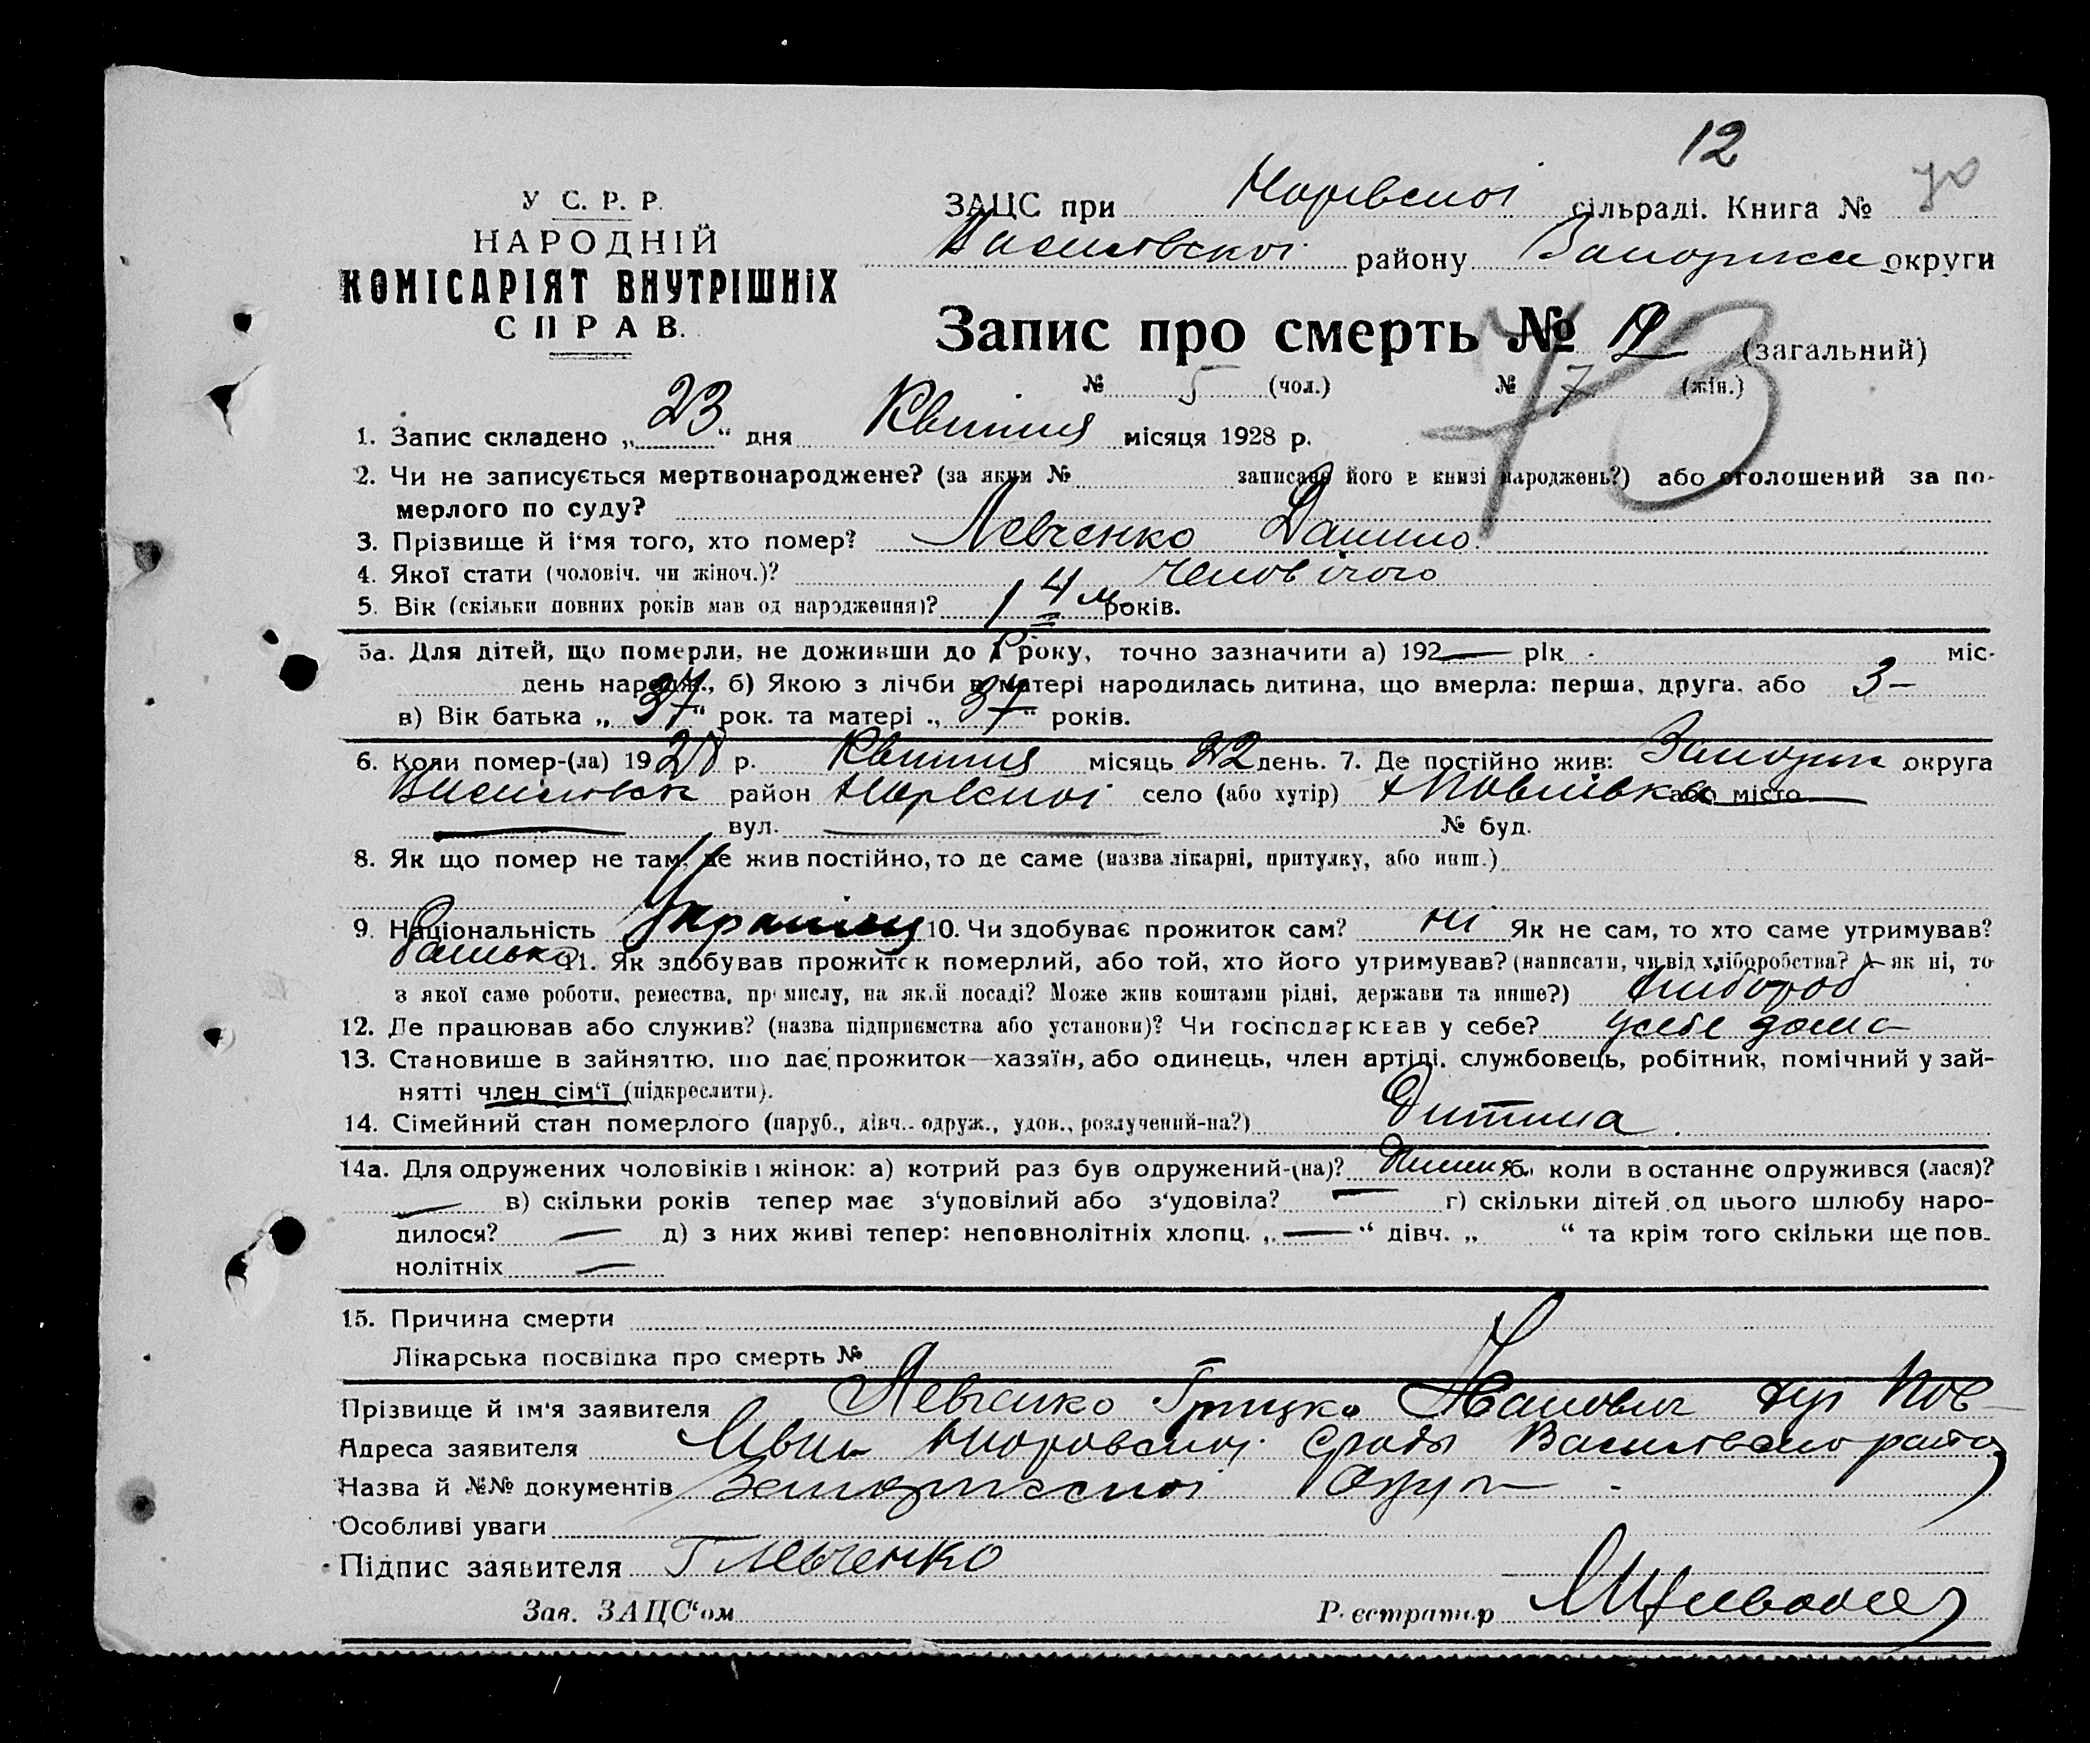 12
У С. Р. Р.
НАРОДНІЙ
КОМІСАРІЯТ ВНУТРІШНІХ
СПРАВ.
ЗАЦС при сільраді. Книга №
району округи
Запис про смерть № 12 (загальний)
73
№ 5 (чол.) № 7 (жін.)
1. Запис складено „ 23 “ дня Квітня місяця 1928 р.
2. Чи не записується мертвонароджене? (за яким № записано його в книзі народжень?) або оголошений за по-
мерлого по суду?
3. Прізвище й і'мя того, хто помер? Левченко Данило
4. Якої стати (чоловіч. чи жіноч.)? Чоловічого
5. Вік (скільки повних років мав од народження)? 1 4 м років.
5а. Для дітей, що померли, не доживши до 1 року, точно зазначити а) 192— рік міс-
день народж., б) Якою з лічби в матері народилась дитина, що вмерла: перша, друга, або 3–
в) Вік батька „ 37 “ рок. та матері „ 37 “ років.
6. Коли помер-(ла) 1928 р. Квітня місяць 22 день. 7. Де постійно жив: Запоріж округа
район село (або хутір) х Павлівка або місто
вул. № буд.
8. Як що помер не там, де жив постійно, то де саме (назва лікарні, притулку, або инш.)
9. Національність Українец 10. Чи здобуває прожиток сам? ні Як не сам, то хто саме утримував?
батько 11. Як здобував прожиток померлий, або той, хто його утримував? (написати, чи від хліборобства? А як ні, то
з якої саме роботи, ремества, промислу, на якій посаді? Може жив коштами рідні, держави та инше?) хлібороб
12. Де працював або служив? (назва підприємства або установи)? Чи господарював у себе? у себе дома
13. Становише в зайняттю, що дає прожиток—хазяїн, або одинець, член артілі, службовець, робітник, помічний у зай-
нятті член сім'ї (підкреслити).
14. Сімейний стан померлого (паруб., дівч., одруж., удов., розлучений-на?) Дитина
14а. Для одружених чоловіків і жінок: а) котрий раз був одружений-(на)? б) коли востаннє одружився (лася)?
— в) скільки років тепер має з'удовілий або з'удовіла? — г) скільки дітей од цього шлюбу наро-
дилося? — д) з них живі тепер: неповнолітніх хлопц. „ — “ дівч. „ “ та крім того скільки ще пов-
нолітніх —
15. Причина смерти
Лікарська посвідка про смерть №
Прізвище й ім'я заявителя Левченко Грицко Іванович хут Пов-
Адреса заявителя
Назва й №№ документів
Особливі уваги
Підпис заявителя Г Левченко
Зав. ЗАЦС'ом Реєстратор